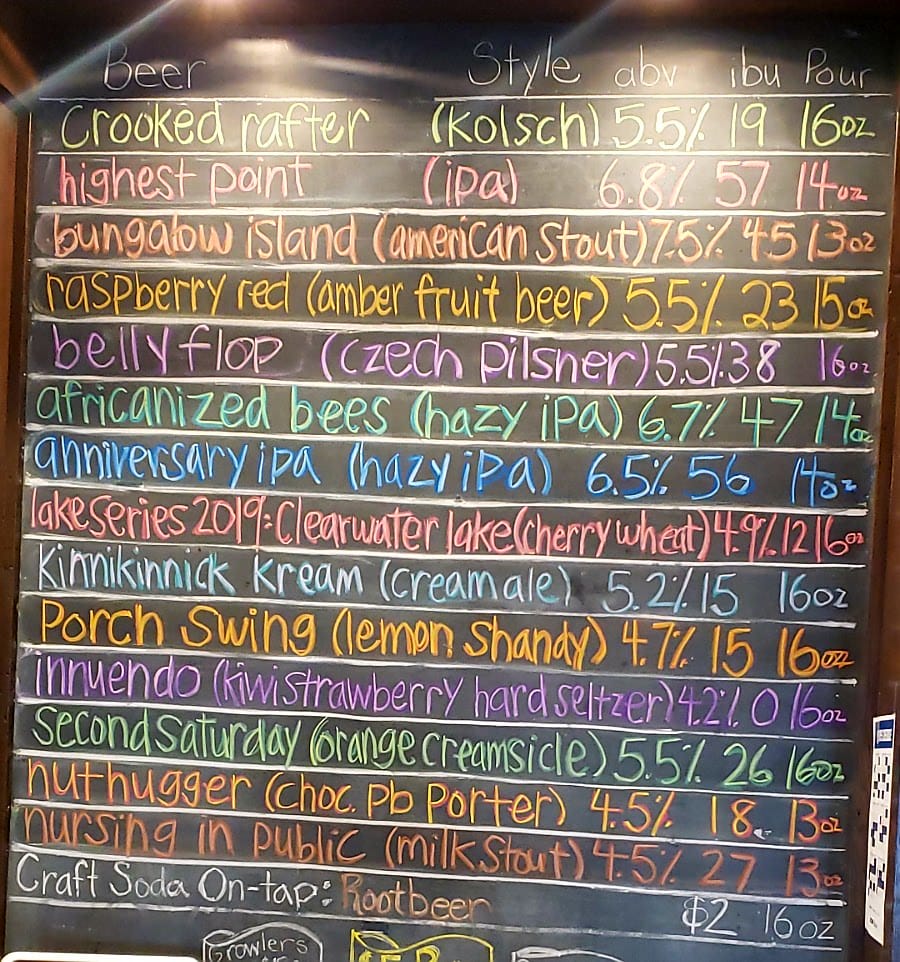 Beer Style abv ibu Pour
Crooked rafter (Kolsch) 5.5% 19 16oz
highest point (ipa) 6.8% 57 14oz
bungalow island (american stout) 7.5% 45 13oz
raspberry red (amber fruit beer) 5.5% 23 15oz
belly flop (Czech pilsner) 5.5% 38 16oz
africanized bees (hazy ipa) 6.7% 47 14oz
anniversary ipa (hazy ipa) 6.5% 56 14oz
lake series 2019: Clearwater lake (cherry wheat) 4.9% 12 16oz
Kinnikinnick Kream (cream ale) 5.2% 15 16oz
Porch Swing (lemon Shandy) 4.7% 15 16oz
innuendo (kiwi strawberry hard seltzer) 4.2% 0 16oz
second saturday (orange creamsicle) 5.5% 26 16oz
nuthugger (choc. pb Porter) 4.5% 18 13oz
nursing in public (milk stout) 4.5% 27 13oz
Craft Soda On-tap: Rootbeer
$2 16oz
Growlers